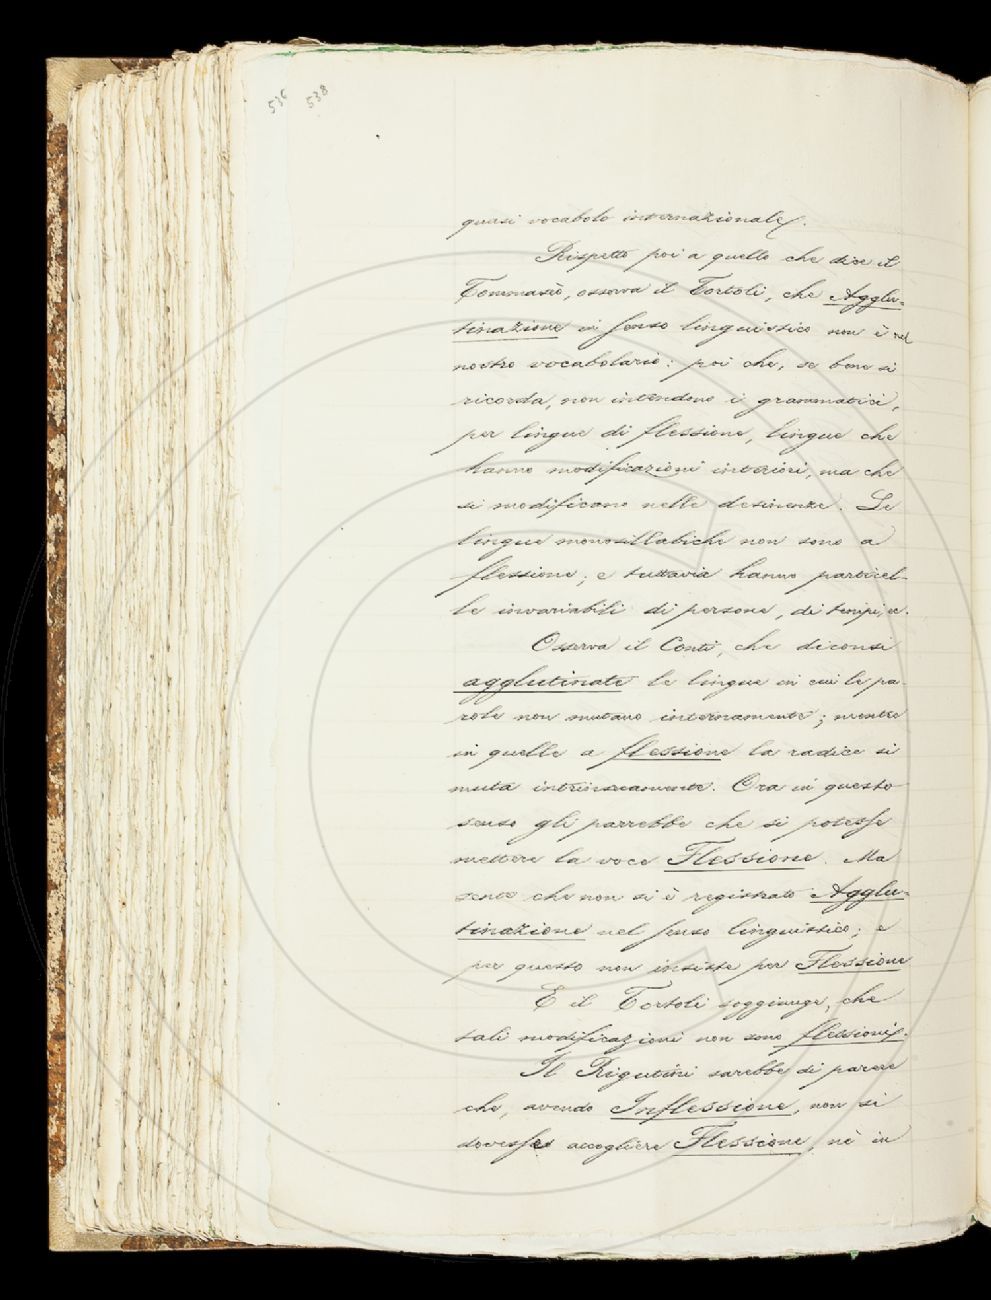 536 538
quasi vocabolo internazionale.
Rispetto poi a quello che dice il
Tommasèo, osserva il Tortoli, che Agglu-
tinazione in senso linguistico non è nel
nostro vocabolario: poi che, se bene si
ricorda, non intendono i grammatici,
per lingue di flessione, lingue che
hanno modificazioni interiori, ma che
si modificano nelle desinenze. Le
lingue monosillabiche non sono a
flessione; e tuttavia hanno particel-
le invariabili di persone, di tempi, ec.
Osserva il Conti, che diconsi
agglutinate le lingue in cui le pa
role non mutano internamente; mentre
in quelle a flessione la radice si
muta intrinsecamente. Ora in questo
senso gli parrebbe che si potesse
mettere la voce Flessione. Ma
sente che non si è registrato Agglu-
tinazione nel senso linguistico; e
per questo non insiste per Flessione
E il Tortoli soggiunge, che
tali modificazioni non sono flessioni.
Il Rigutini sarebbe di parere
che, avendo Inflessione, non si
dovesse accogliere Flessione, nè in